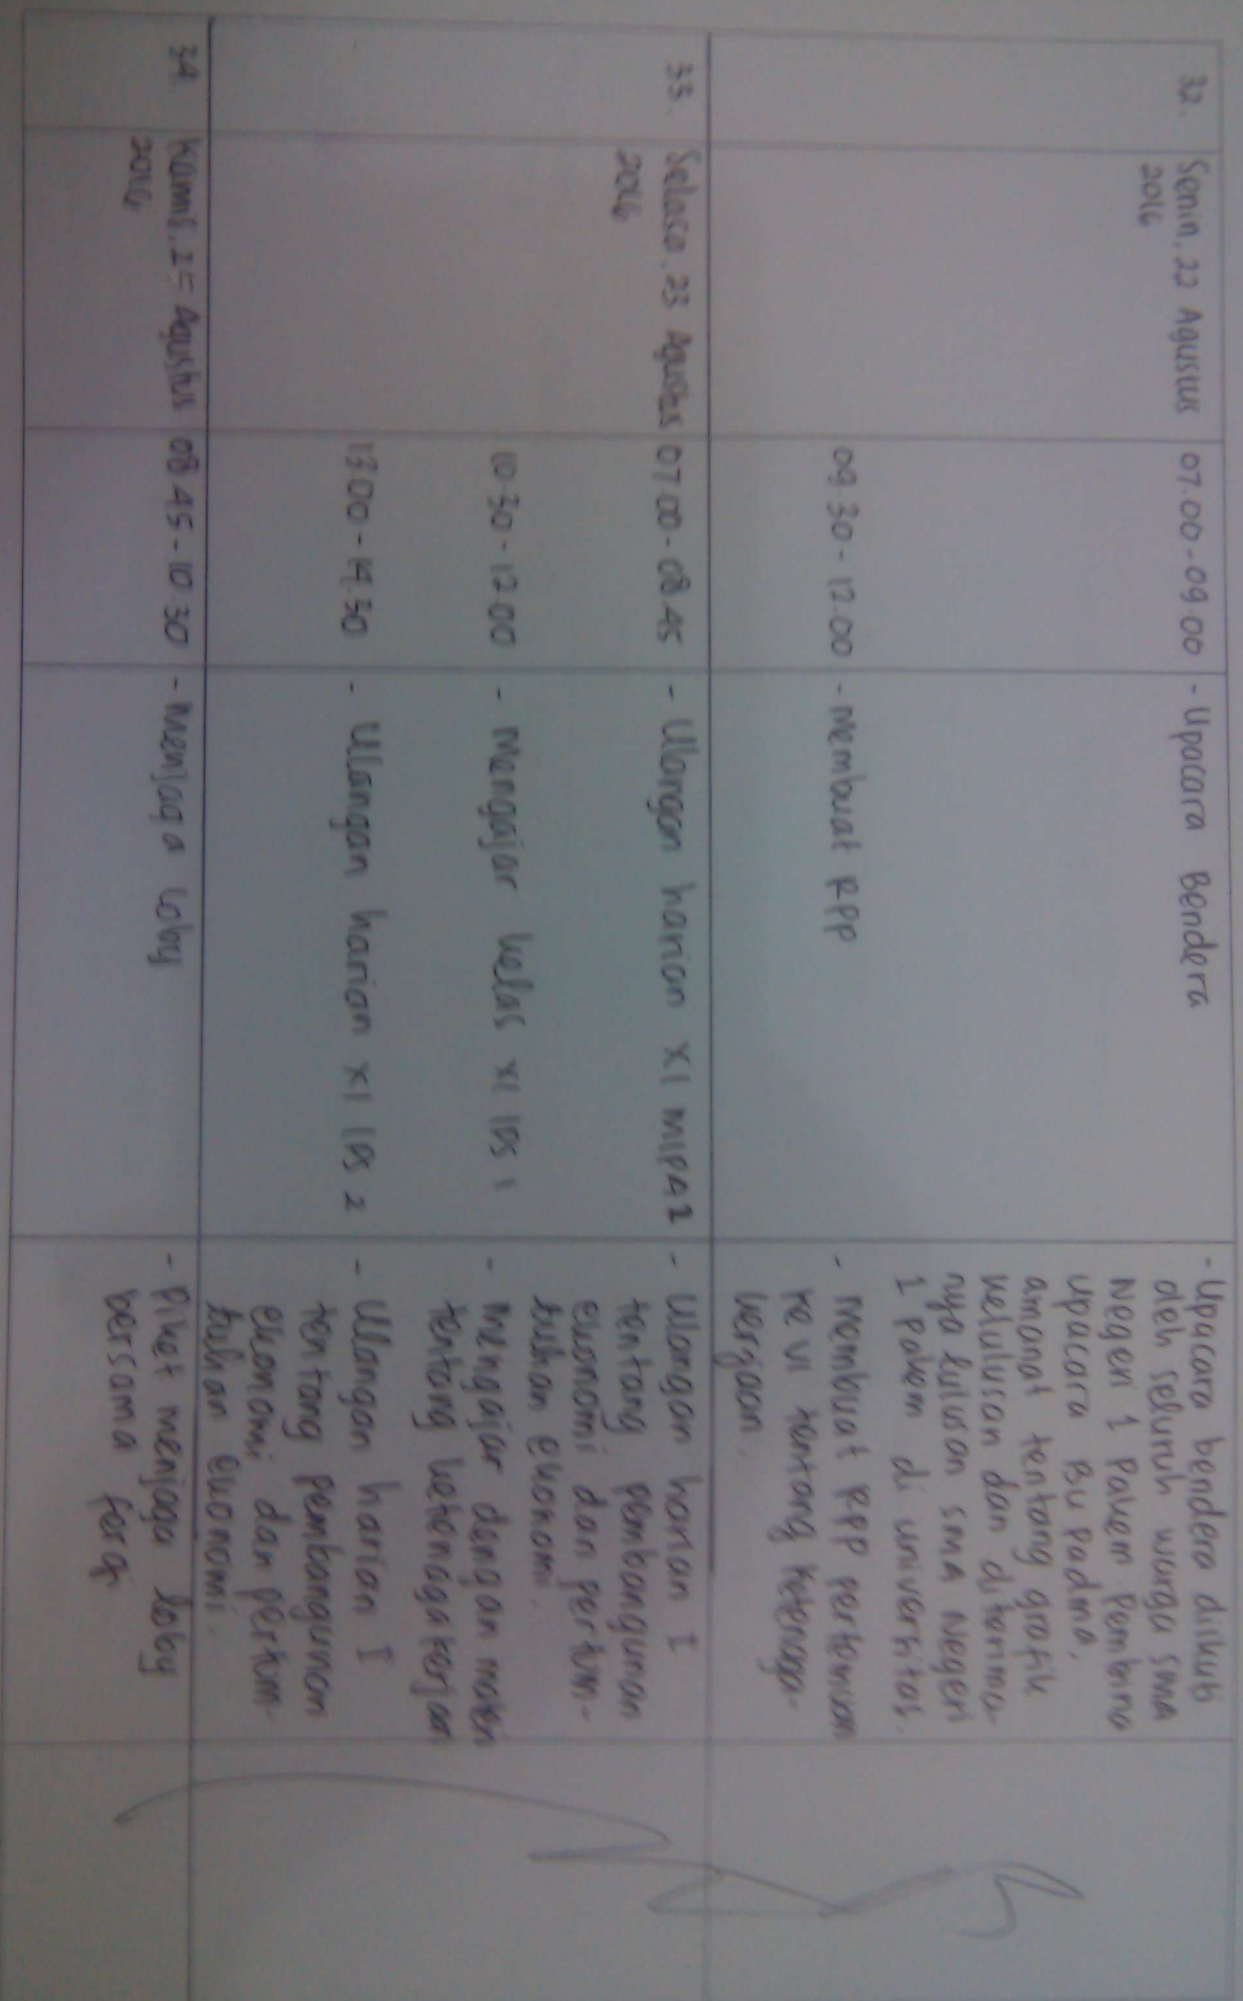 32. Senin, 22 Agustus 07.00-09.00 - Upacara Bendera - Upacara bendera diikuti
2016 oleh seluruh warga SMA
Negeri 1 Pakem. Pembina
upacara Bu Padma,
amanat tentang grafik
kelulusan dan diterima-
nya lulusan SMA Negeri
1 Pakem di universitas.
09.30-12.00 - Membuat RPP - Membuat RPP pertemuan
ke VI tentang Ketenaga-
kerjaan.
33. Selasa, 23 Agustus 07.00-08.45 - Ulangan harian XI MIPA2 - Ulangan harian I
2016 tentang pembangunan
ekonomi dan pertum-
buhan ekonomi.
10.30-12.00 - Mengajar kelas XI IPS 1 - Mengajar dengan materi
tentang ketenagakerjaan
13.00-14.30 - Ulangan harian XI IPS 2 - Ulangan harian I
tentang pembangunan
ekonomi dan pertum-
buhan ekonomi.
34. Kamis, 25 Agustus 08.45-10.30 - Menjaga loby - Piket menjaga loby
2016 bersama